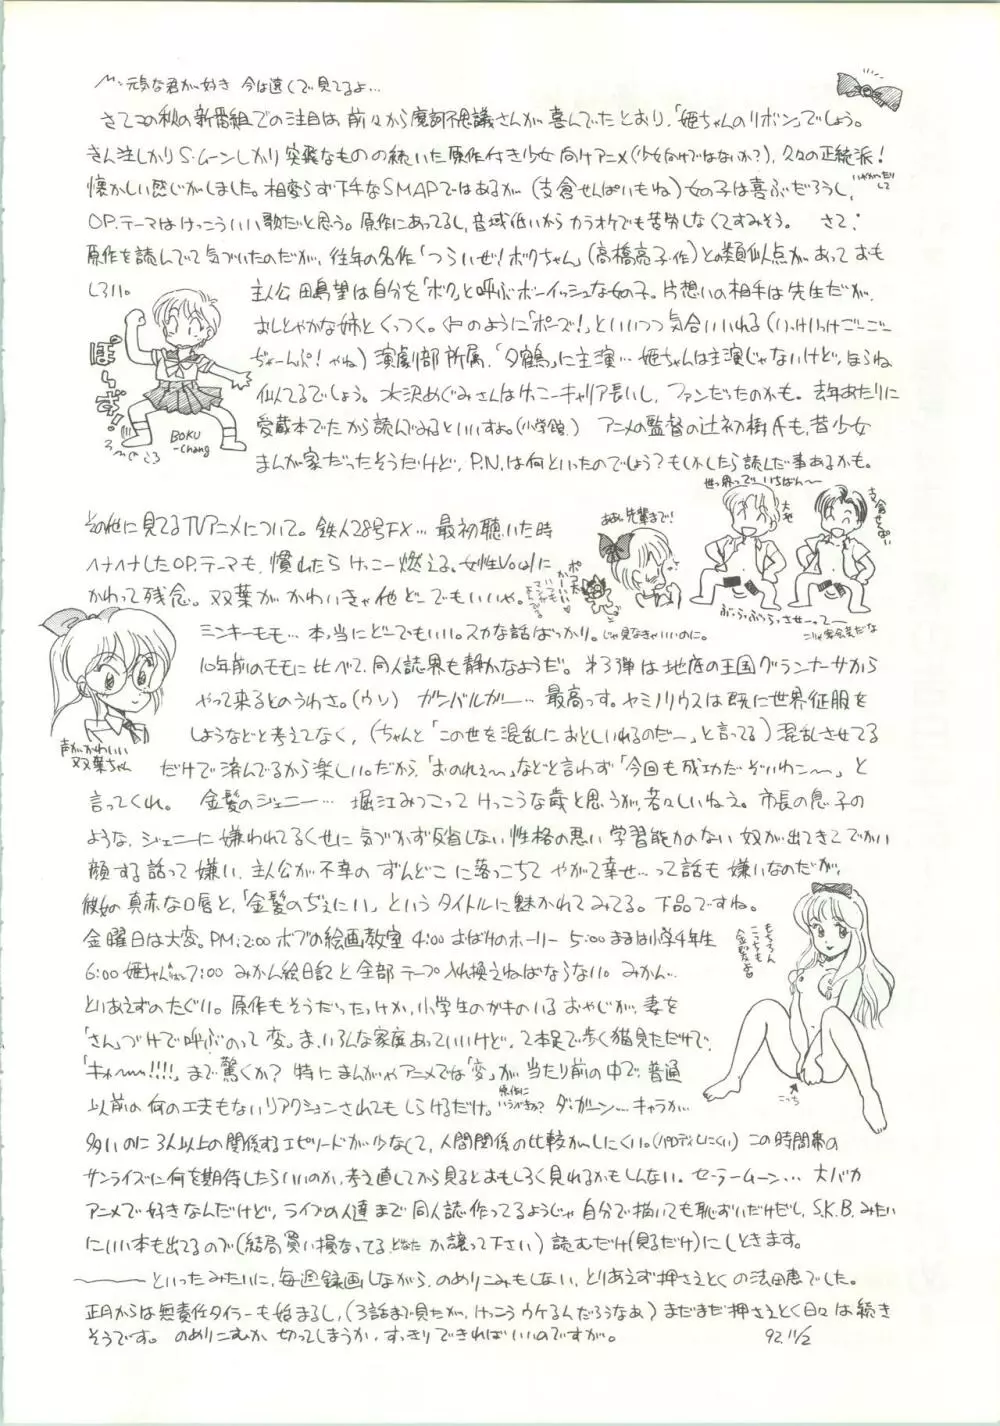 元気な君が好き 今は遠くで見てるよ…
さてこの秋の新番組での注目は、前々から魔訶不思議さんが喜んでたとおり、「姫ちゃんのリボン」でしょう。
きん注しかりS・ムーンしかり突飛なものの続いた原作付き少女向けアニメ(少女向けではないか?)、久々の正統派!
懐かしい感じがしました。相変らず下手なSMAPではあるが(支倉せんぱいもね)女の子は喜ぶだろうし、
OP.テーマはけっこういい歌だと思う。原作にあってるし、音域低いからカラオケでも苦労しなくてすみそう。 さて、
原作を読んでて気づいたのだが、往年の名作「つらいぜ!ボクちゃん」(高橋亮子・作)との類似点があっておも
しろい。
主人公 田島望は自分を「ボク」と呼ぶボーイッシュな女の子。片想いの相手は先生だが、
おしとやかな姉とくっつく。のように「ポーズ!」といいつつ気合いいれる(いけいけごーごー
ぢゃーんぷ!やね)演劇部所属、「夕鶴」に主演…姫ちゃんは主演じゃないけど、ほらね
似てるでしょう。水沢めぐみさんはけっこーキャリア長いし、ファンだったのかも。去年あたりに
愛蔵本でたから読んでみるといいすよ。(小学館) アニメの監督の辻初樹氏も、昔少女
まんが家だったそうだけど、P.N.は何といったのでしょう?もしかしたら読んだ事あるかも。
ぽーずぁ!
BOKU
-chang
世っ界って いちばん〜
大地
支倉せんぱい
ああっ先輩まで!
ぶっちぶっちっさせーってー
その他に見てるTVアニメについて。鉄人28号FX…最初聴いた時
ハナハナしたOP.テーマも、慣れたらけっこー燃える。女性Vo.に
かわって残念。双葉がかわいきゃ他どーでもいいや。
ミンキーモモ…本当にどーでもいい。スカな話ばっかり。じゃ見なきゃいいのに。
10年前のモモに比べて、同人誌界も静かなようだ。第3弾は地底の王国グランナーサから
やって来るとのうわさ。(ウソ) ガンバルガー…最高っす。ヤミノリウスは既に世界征服を
しようなどと考えてなく、(ちゃんと「この世を混乱におとしいれるのだー」と言ってる)混乱させてる
だけで済んでるから楽しい。だから「おのれぇ〜」などと言わず「今回も成功だぞいわン〜」と
言ってくれ。 金髪のジェニー…堀江みつこってけっこうな歳と思うが、若々しいねえ。市長の息子の
ような、ジェニーに嫌われてるくせに気づかず反省しない性格の悪い学習能力のない奴が出てきてでかい
顔する話って嫌い。主人公が不幸のずんどこに落っこちてやがて幸せ…って話も嫌いなのだが、
彼女の真赤な口唇と、「金髪のぢぇにい」というタイトルに魅かれてみてる。下品ですね。
声がかわいい
双葉ちゃん
金曜日は大変。PM:2:00 ボブの絵画教室 4:00 おばけのホーリー 5:00 まるは小学4年生
6:00 姫ちゃん 7:00 みかん絵日記と全部テープ入れ換えねばならない。みかん…
とりあえずのたぐい。原作もそうだったっけか、小学生のガキのいるおやじが、妻を
「さん」づけで呼ぶのって変。ま、いろんな家庭あっていいけど、2本足で歩く猫見ただけで、
「キャ〜!!!!」まで驚くか? 特にまんがやアニメでは「変」が当たり前の中で、普通
以前の何の工夫もないリアクションされてもしらけるだけ。 ダ・ガーン…キャラが
こっち
多いのに3人以上の関係するエピソードが少なくて、人間関係の比較がしにくい。(パロディしにくい) この時間帯の
サンライズに何を期待したらいいのか、考え直してから見るとおもしろく見れるかもしんない。セーラームーン…大バカ
アニメで好きなんだけど、ライブの人達まで同人誌作ってるようじゃ自分で描いても恥ずいだけだし、S.K.B.みたい
にいい本も出てるので(結局買い損なってる、どなたか譲って下さい)読むだけ(見るだけ)にしときます。
といったみたいに、毎週録画しながら、のめりこみもしない、とりあえず押さえとくの法田恵でした。
正月からは無責任タイラーも始まるし、(3話まで見たが、けっこうウケるんだろうなあ)まだまだ押さえとく日々は続き
そうです。 のめりこむか切ってしまうか、すっきりできればいいのですが。 92.11/2